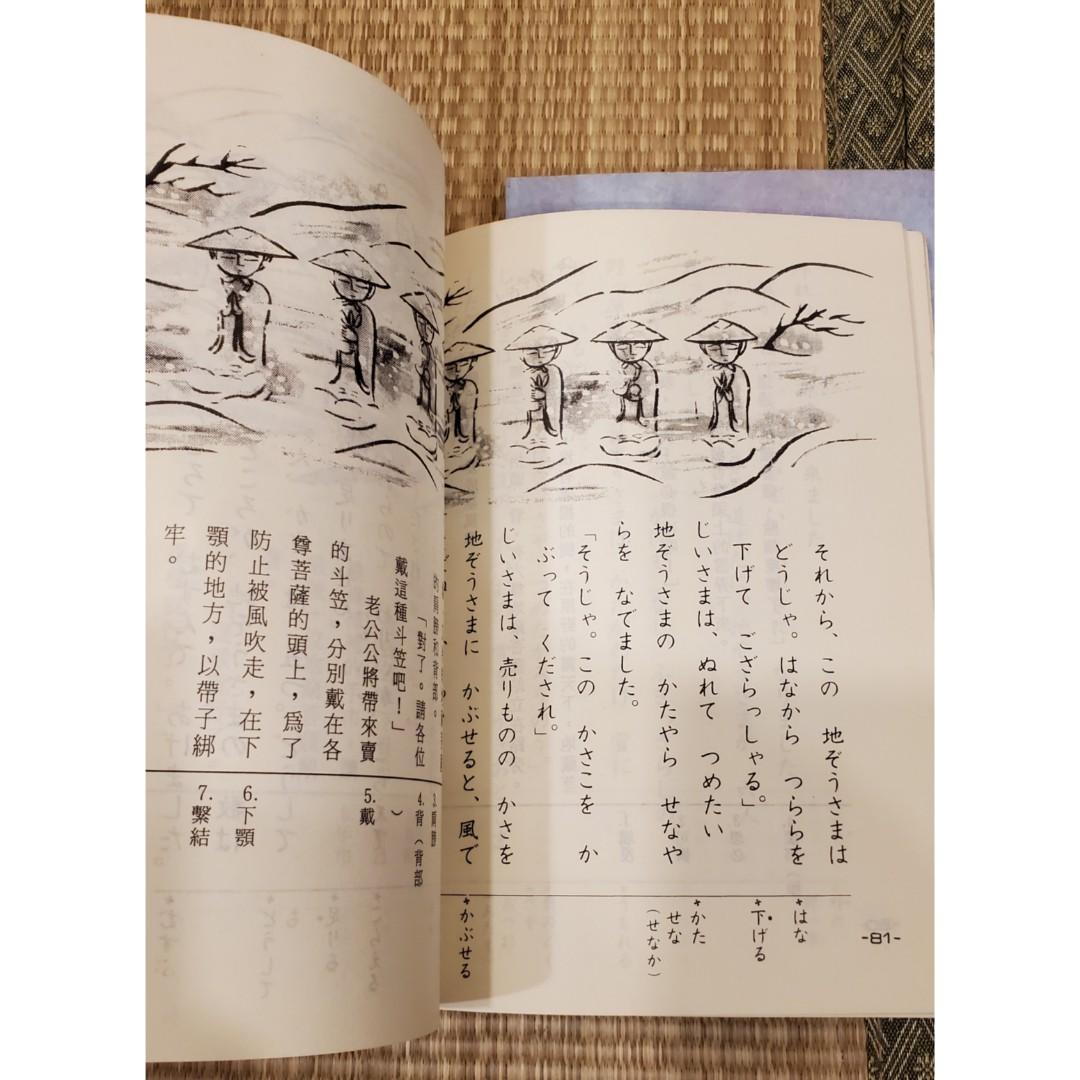 それから、この 地ぞうさまは
どうじゃ。はなから つららを
下げて ござらっしゃる。」
じいさまは、ぬれて つめたい
地ぞうさまの かたやら せなや
らを なでました。
「そうじゃ。この かさこを か
ぶって くだされ。」
じいさまは、売りものの かさを
地ぞうさまに かぶせると、風で
+はな
+下げる
+かた
せな
(せなか)
+かぶせる
-81-
的肩膀和背部。
「對了。請各位
戴這種斗笠吧！」
老公公將帶來賣
的斗笠，分別戴在各
尊菩薩的頭上，爲了
防止被風吹走，在下
顎的地方，以帶子綁
牢。
3.肩膀
4.背（背部
）
5.戴
6.下顎
7.繫結